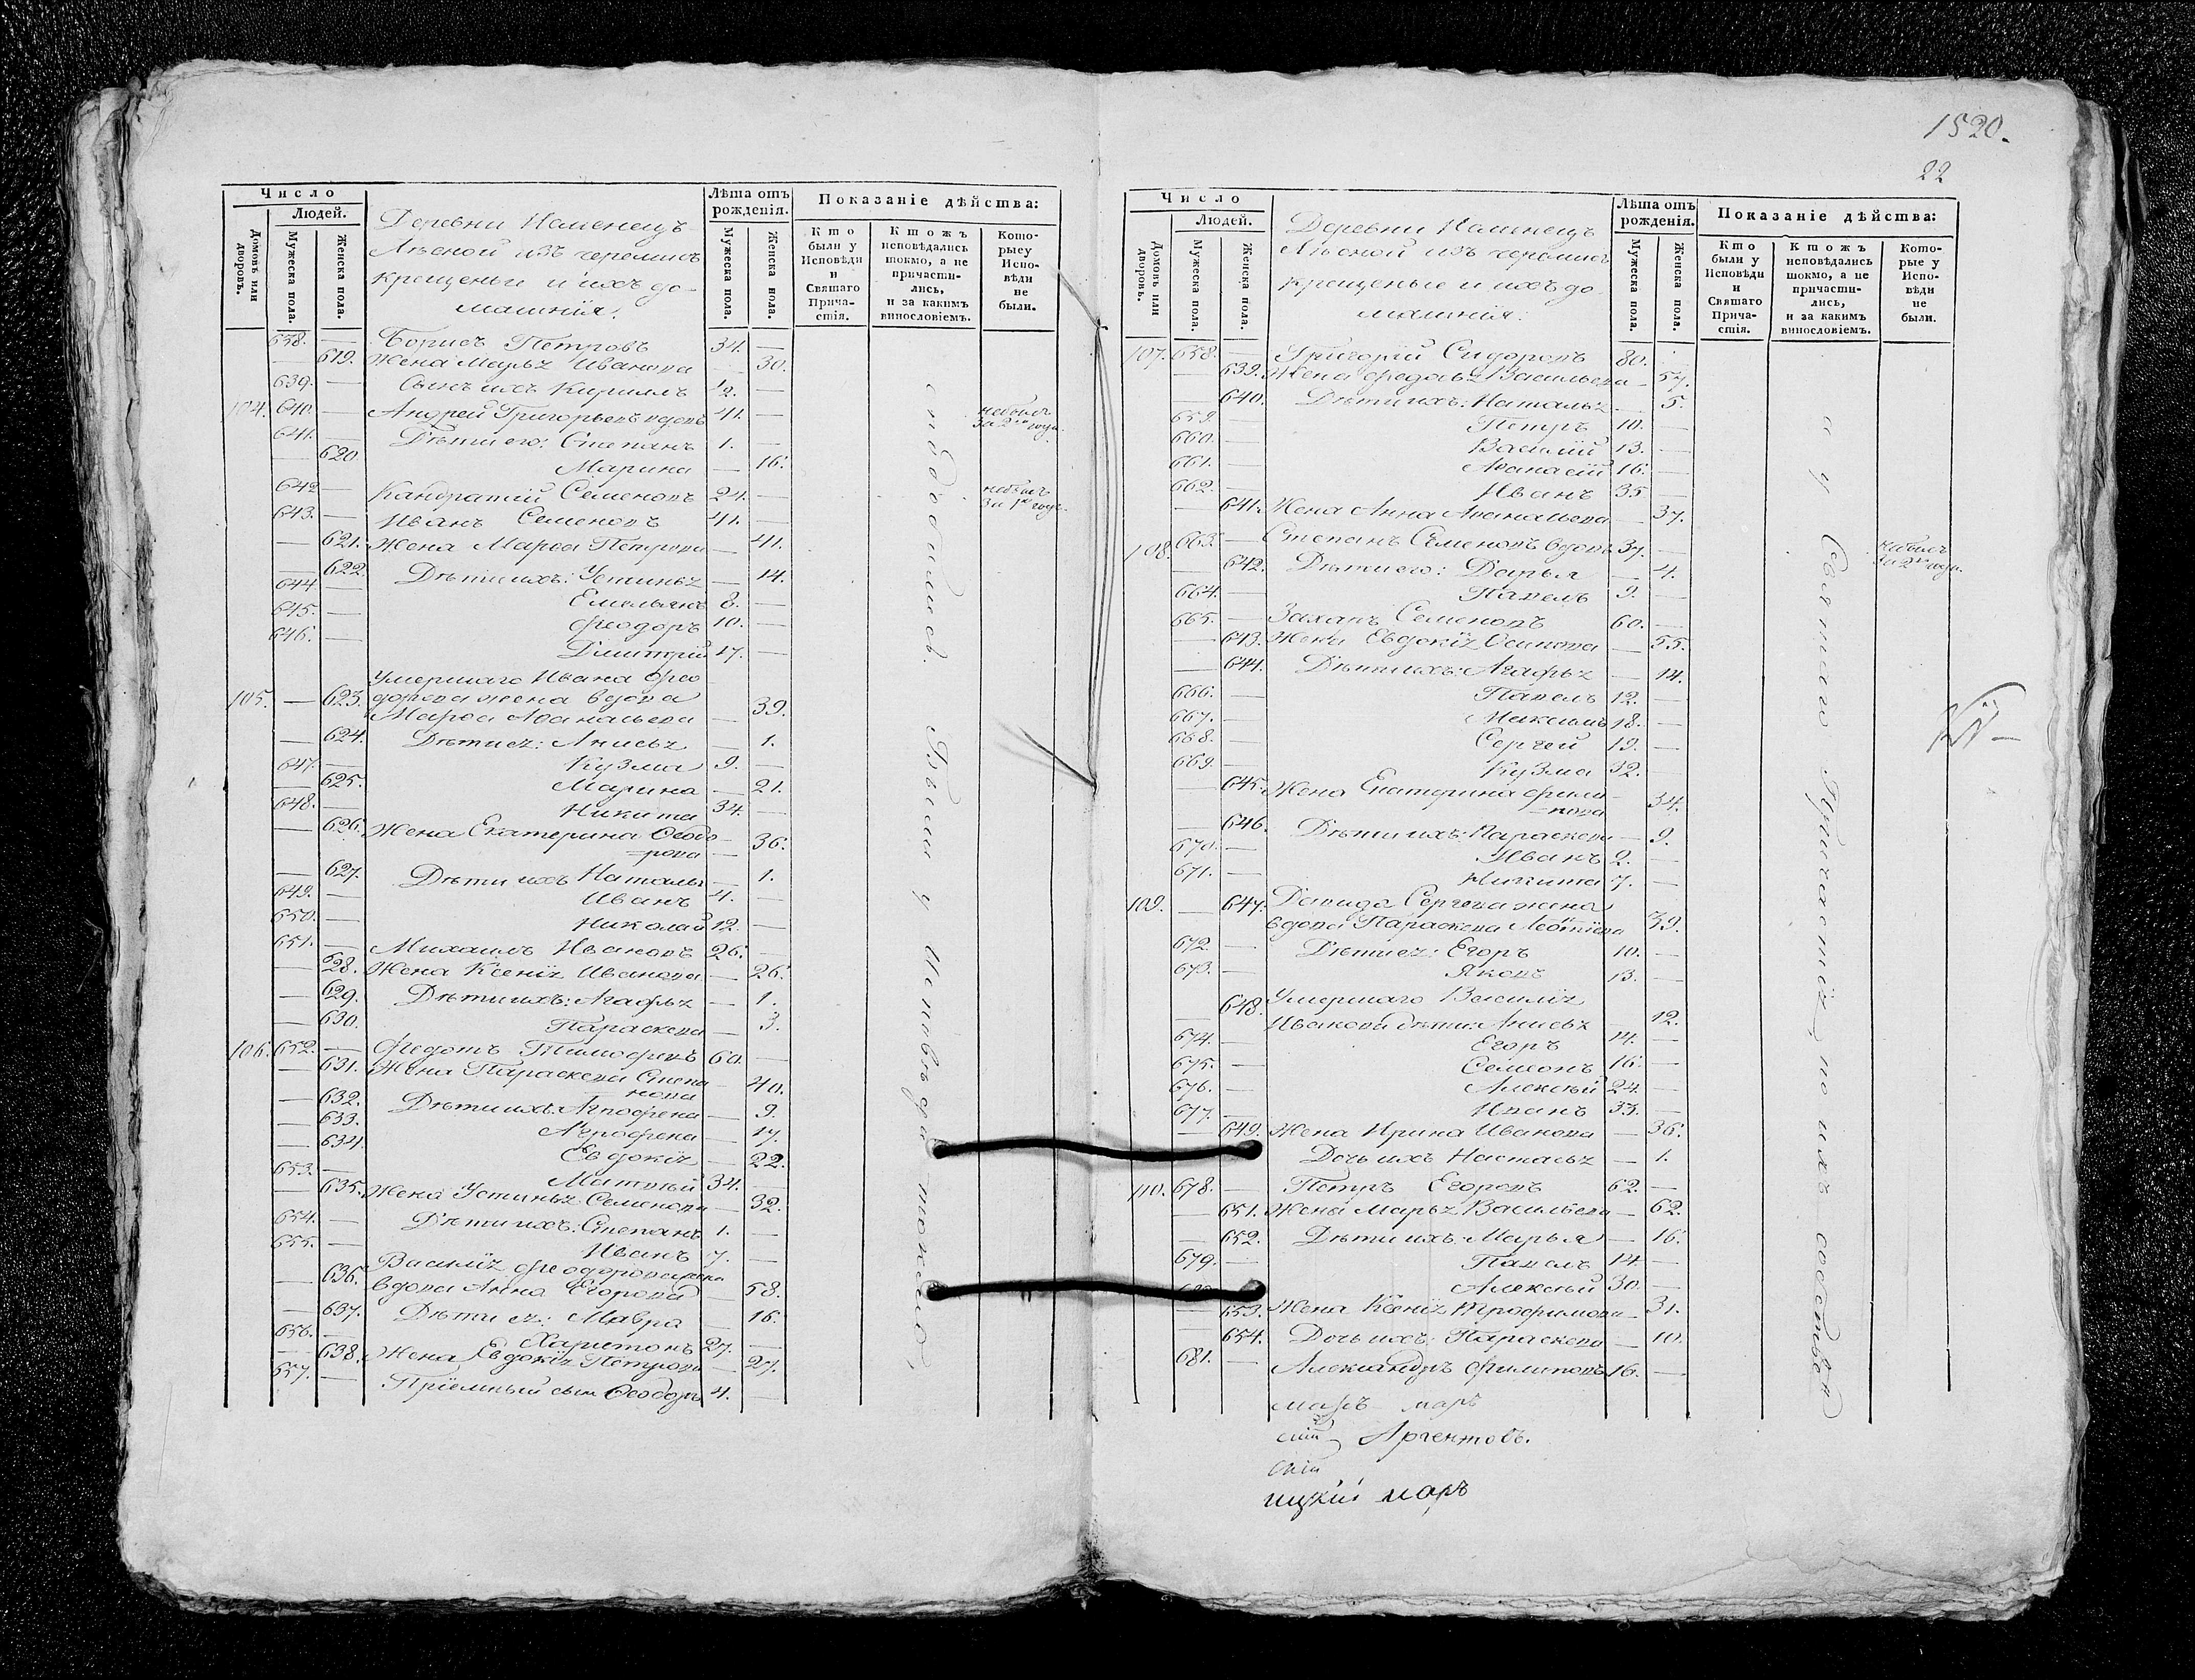 1520.
22
Число
Людей.
Домовъ или дворовъ.
Мужеска пола.
Женска пола.
Деревни
Лѣсной изъ черемисъ
крещеныя и ихъ до-
машнія.
Лѣта отъ рожденія.
Мужеска пола.
Женска пола.
Показаніе дѣйства:
Кто были у Исповѣди и Святаго Причастія.
Ктожъ исповѣдались токмо, а не причастились, и за какимъ винословіемъ.
Которыеу Исповѣди не были.
638. — Борисъ Петровъ 34. —
— 619. Жена Марья Иванова — 30.
639. — Сынъ ихъ Кирилъ —
104. 640. — Андрей Григорьевъ вдовъ 41. — небылъ
641. — Дѣти его: Степанъ 1. —
— 620 Марина — 16.
642 — Кандратий Семеновъ 24. — небылъ
643. — Иванъ Семеновъ 41. —
— 621. Жена Марѳа Петрова — 41.
— 622. Дѣти ихъ: Устинья — 14.
644 — Емельянъ 8. —
645. — Феодоръ 10. —
646. — Дмитрий 17. —
Умершаго Ивана Фео
105. — 623. дорова жена вдова
Марѳа Аѳанасьева — 39.
— 624. Дѣти ея: Анисья — 1.
647. — Кузма 9. —
— 625. Марина — 21.
648. — Никита 34. —
— 626. Жена Екатерина Ѳеодо-
рова — 36.
— 627. Дѣти ихъ Наталья — 1.
649. — Иванъ 4. —
650. — Николай 12. —
651. — Михаилъ Ивановъ 26. —
— 628. Жена Ксенія Иванова — 26.
— 629. Дѣти ихъ: Агафья — 1.
— 630. Параскева — 3.
106. 652. — Федотъ Тимофеевъ 60. —
— 631. Жена Параскева Степа
нова — 40.
— 632. Дѣти ихъ: Агрофена — 9.
— 633. Агрофена — 17.
— 634. Евдокія — 22.
653. — Матвѣй 34. —
— 635. Жена Устинья Семенова — 32.
654. — Дѣти ихъ: Степанъ 1. —
655. — Иванъ 7. —
Василія Феодорова жена
— 636. вдова Анна Егорова — 58.
— 637. Дѣти ея: Мавра — 16.
656. — Харитонъ 27. —
— 638. Жена Евдокія Петрова — 27.
657. — Пріемный сынъ Ѳеодоръ 4. —
сподобились. Были у Исповѣди токмо,
Число
Людей.
Домовъ или дворовъ.
Мужеска пола.
Женска пола.
Деревни
Лѣсной изъ черемисъ
крещеные и ихъ до
машнія:
Лѣта отъ рожденія.
Мужеска пола.
Женска пола.
Показаніе дѣйства:
Кто были у Исповѣди и Святаго Причастія.
Ктожъ исповѣдались токмо, а не причастились, и за какимъ винословіемъ.
Которые у Исповѣди не были.
107. 658. — Григорій Сидоровъ 80. —
— 639. Жена Федосья Васильева — 57.
— 640. Дѣти ихъ: Наталья — 5.
659. — Петръ 10. —
660. — Василий 13. —
661. — Аѳанасій 16. —
662. — Иванъ 35 —
— 641. Жена Анна Аѳанасьева — 37.
108. 663. — Степанъ Семеновъ вдовъ 37. — небылъ
— 642. Дѣти его: Дарья — 4.
664. — Павелъ 9. —
665. — Захаръ Семеновъ 60. —
— 643. Жена Евдокія Осипова — 55.
— 644. Дѣти ихъ: Агафья — 14.
666. — Павелъ 12. —
667. — Максимъ 18. —
668. — Сергей 19. —
669. — Кузма 32. —
— 645. Жена Екатерина Фили-
пова 34.
— 646. Дѣти ихъ: Параскева — 9.
670. — Иванъ 2. —
671. — Никита 7. —
109. — 647. Давида Сергеева жена
вдова Параскева 39.
672. — Дѣти ея: Егоръ 10. —
673. — Яковъ 13. —
— 648. Умершаго Василія
Иванова дѣти: Анисья — 12.
674. — Егоръ 14. —
675. — Семеонъ 16. —
676. — Алексѣй 24. —
677. — Иванъ 33. —
— 649. Жена Ирина Иванова — 36.
Дочь ихъ Насталья — 1.
110. 678. — Петръ Егоровъ 62. —
— 651. Жена Марья Васильева — 62.
— 652. Дѣти ихъ Марья — 16.
679. — Павелъ 14 —
Алексѣй 30. —
— 653. Жена Ксенія Трофимова — 31.
— 654. Дочь ихъ: Параскева — 10.
681. — Александръ Филиповъ 16. —
а у Святаго Причастія, по ихъ
Аргентовъ.
ицкій марѣ